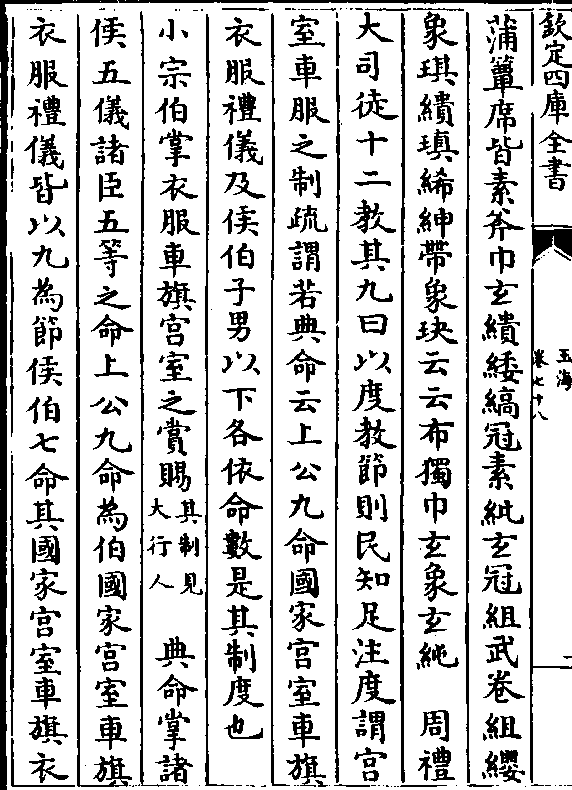 欽定四庫全書
玉海
卷七十八
二
蒲簟席皆素斧巾玄繢緌縞冠素紕玄冠組武卷組纓
象琪繢瑱絺紳帶象玦云云布獨巾玄象玄純　周禮
大司徒十二教其九曰以度教節則民知足注度謂宫
室車服之制疏謂若典命云上公九命國家宫室車旗
衣服禮儀及侯伯子男以下各依命數是其制度也
小宗伯掌衣服車旗宫室之賞賜其制見大行人　典命掌諸
侯五儀諸臣五等之命上公九命為伯國家宫室車旗
衣服禮儀皆以九為節侯伯七命其國家宫室車旗衣